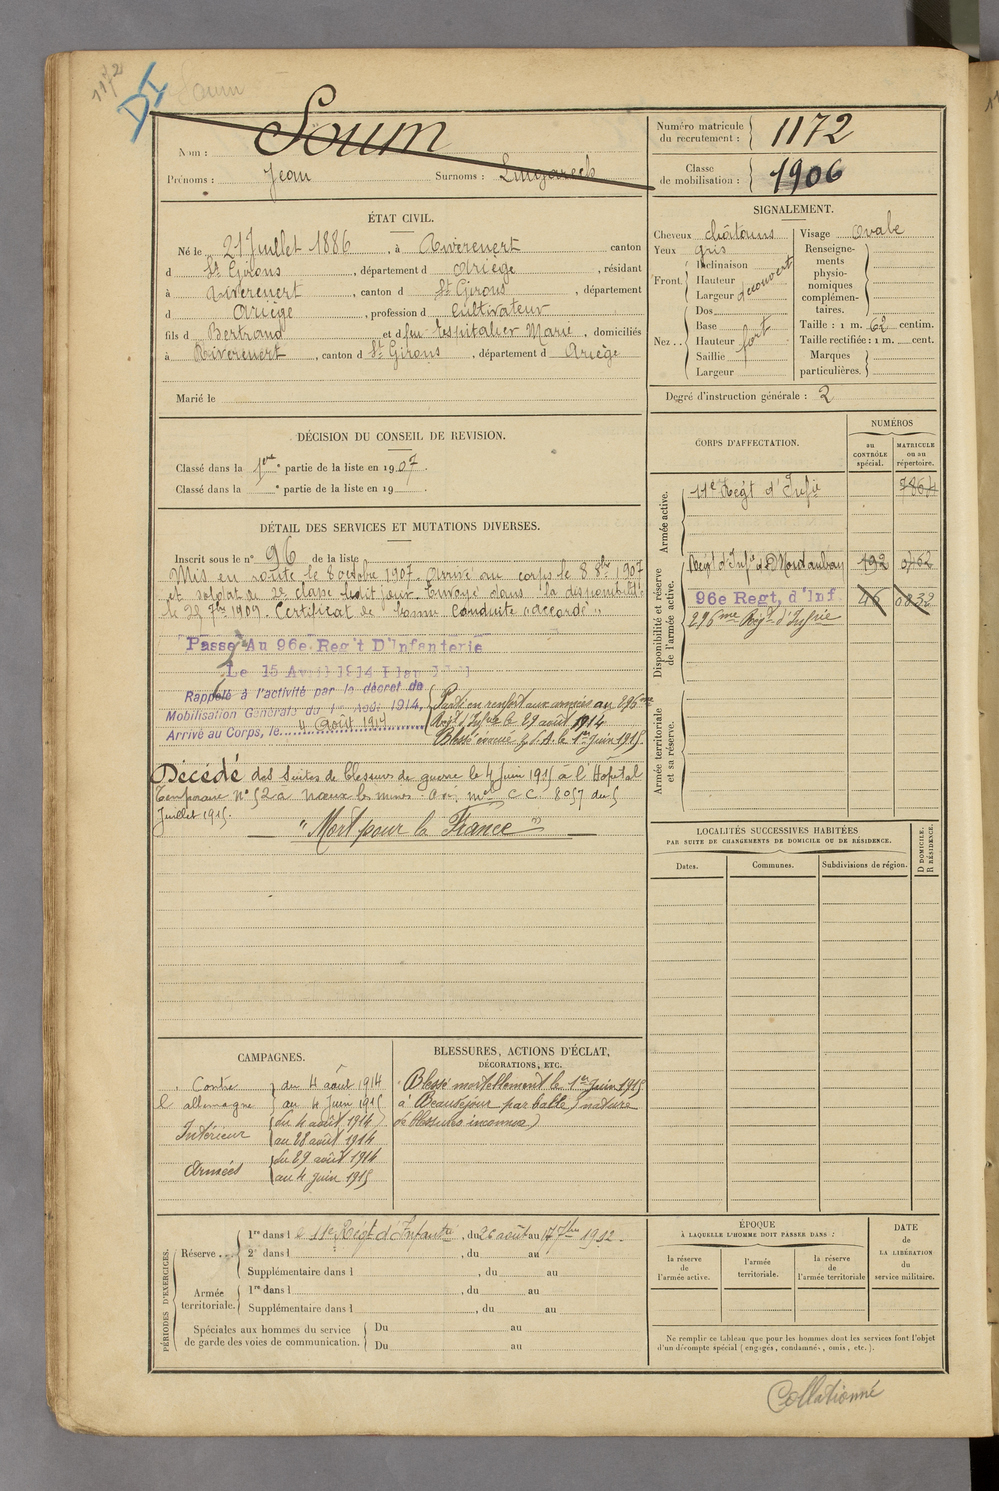 1172
DI
Soum
Nom : Soum
Prénoms : Jean Surnoms :
Numéro matricule du recrutement : 1172
Classe de mobilisation : 1906
ÉTAT CIVIL.
Né le 21 Juillet 1886, à Riverenert canton
d St Girons, département d Ariège, résidant
à Riverenert, canton d St Girons, département
d Ariège, profession d Cultivateur
fils d Bertrand et d feu Espitalier Marie, domiciliés
à Riverenert, canton d St Girons, département d Ariège
Marié le
SIGNALEMENT.
Cheveux châtains
Yeux gris
Front. Inclinaison
Hauteur
Largeur
découvert
Nez.. Dos
Base
Hauteur
Saillie
Largeur
fort
Visage ovale
Renseignements physionomiques complémentaires.
Taille : 1 m. 62 centim.
Taille rectifiée : 1 m. cent.
Marques particulières.
Degré d'instruction générale : 2
DÉCISION DU CONSEIL DE REVISION.
Classé dans la 1ère partie de la liste en 1907.
Classé dans la e partie de la liste en 19 .
CORPS D'AFFECTATION.
NUMÉROS
au CONTRÔLE spécial.
MATRICULE ou au répertoire.
Armée active.
11e Régt d'Infie
Disponibilité et réserve de l'armée active.
Régt d'Infie de Montauban 192
96e Regt, d'Inf 46 0832
296me Régt d'Infrie
Armée territoriale et sa réserve.
DÉTAIL DES SERVICES ET MUTATIONS DIVERSES.
Inscrit sous le n° 96 de la liste
Mis en route le 8 octobre 1907. Arrivé au corps le 8 8bre 1907
et soldat de 2e classe ledit jour. Envoyé dans la disponibilité
le 25 7bre 1909. Certificat de bonne conduite "accordé"
Passé Au 96e Reg't D'Infanterie
Le 15 Avril 1914
Rappelé à l'activité par le décret de
Mobilisation Générale du 1er Août 1914,
Arrivé au Corps, le 4 Août 1914
Parti en renfort aux armées au 296me
Régt d'Infrie le 29 août 1914
Blessé évacué le 1er Juin 1915.
Décédé des suites de blessures de guerre le 4 Juin 1915 à l'Hôpital
Temporaire N° 52 à Noeux les mines. Avis mel CC 8057 du 5
Juillet 1915.
"Mort pour la France"
LOCALITÉS SUCCESSIVES HABITÉES
PAR SUITE DE CHANGEMENTS DE DOMICILE OU DE RÉSIDENCE.
Dates. Communes. Subdivisions de région. D DOMICILE. R RÉSIDENCE.
CAMPAGNES.
Contre l'allemagne du 4 août 1914
au 4 Juin 1915
Intérieur du 4 août 1914
au 28 août 1914
Armées du 29 août 1914
au 4 juin 1915
BLESSURES, ACTIONS D'ÉCLAT,
DÉCORATIONS, ETC.
Blessé mortellement le 1er Juin 1915
à Beauséjour par balle (nature
de blessures inconnue)
PÉRIODES D'EXERCICES.
Réserve
1re dans l e 11e Régt d'Infantie, du 26 août au 17 7bre 1912.
2e dans l , du au
Supplémentaire dans l , du au
Armée territoriale.
1re dans l , du au
Supplémentaire dans l , du au
Spéciales aux hommes du service de garde des voies de communication.
Du au
Du au
ÉPOQUE
À LAQUELLE L'HOMME DOIT PASSER DANS :
la réserve de l'armée active.
l'armée territoriale.
la réserve de l'armée territoriale
DATE DE LA LIBÉRATION du service militaire.
Ne remplir ce tableau que pour les hommes dont les services font l'objet
d'un décompte spécial (engagés, condamnés, omis, etc.).
Collationné